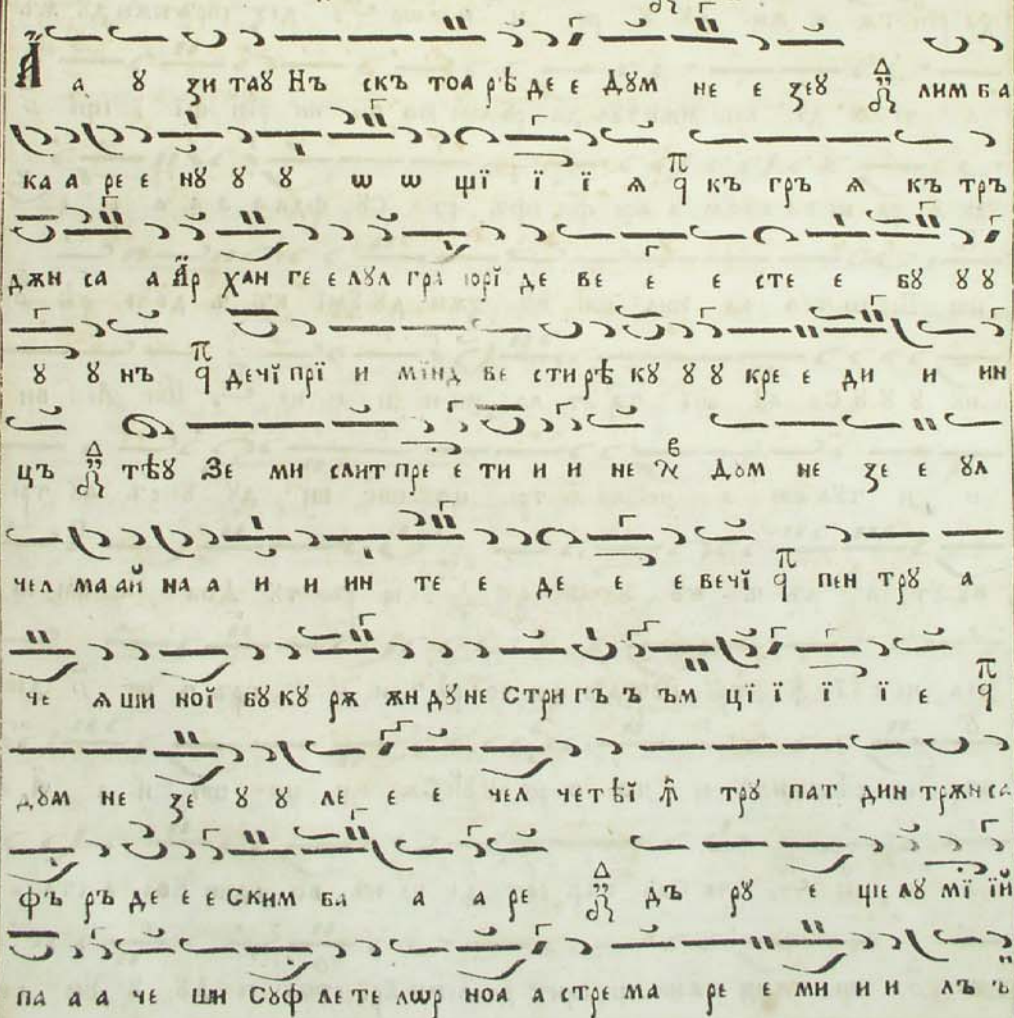 А҆́ а ꙋ зи таꙋ Нъ скъ тоа рѣ де е Дꙋм не е зеꙋ Δ лим ба
ка а ре е нꙋ ꙋ ꙋ ѡ ѡ щї ї ї ѧ π ҁ къ гръ ѧ къ тръ
джн са а А҆́р хан ге е лꙋл гра юрї де ве е е сте е бꙋ ꙋ ꙋ
ꙋ ꙋ нъ π ҁ дечї прї и минд ве сти рѣ кꙋ ꙋ ꙋ кре е ди и ин
цъ Δ тѣꙋ Зе ми слит пре е ти и и не в Дом не зе е ꙋл
чел ма ай на а и и ин те е де е е е вечї π ҁ пен трꙋ а
че ѧ ши ної бꙋ кꙋ рж жн дꙋ не Стри гъ ъ ъм цї ї ї ї е π ҁ
дꙋм не зе ꙋ ꙋ ле е е чел четѣї трꙋ пат дин тржн са
фъ ръ де е е Ским ба а а ре Δ дъ рꙋ е ще лꙋ мї їй
па а а че ши Сꙋф ле те лѡр ноа а стре ма ре е ми и и лъ ъ